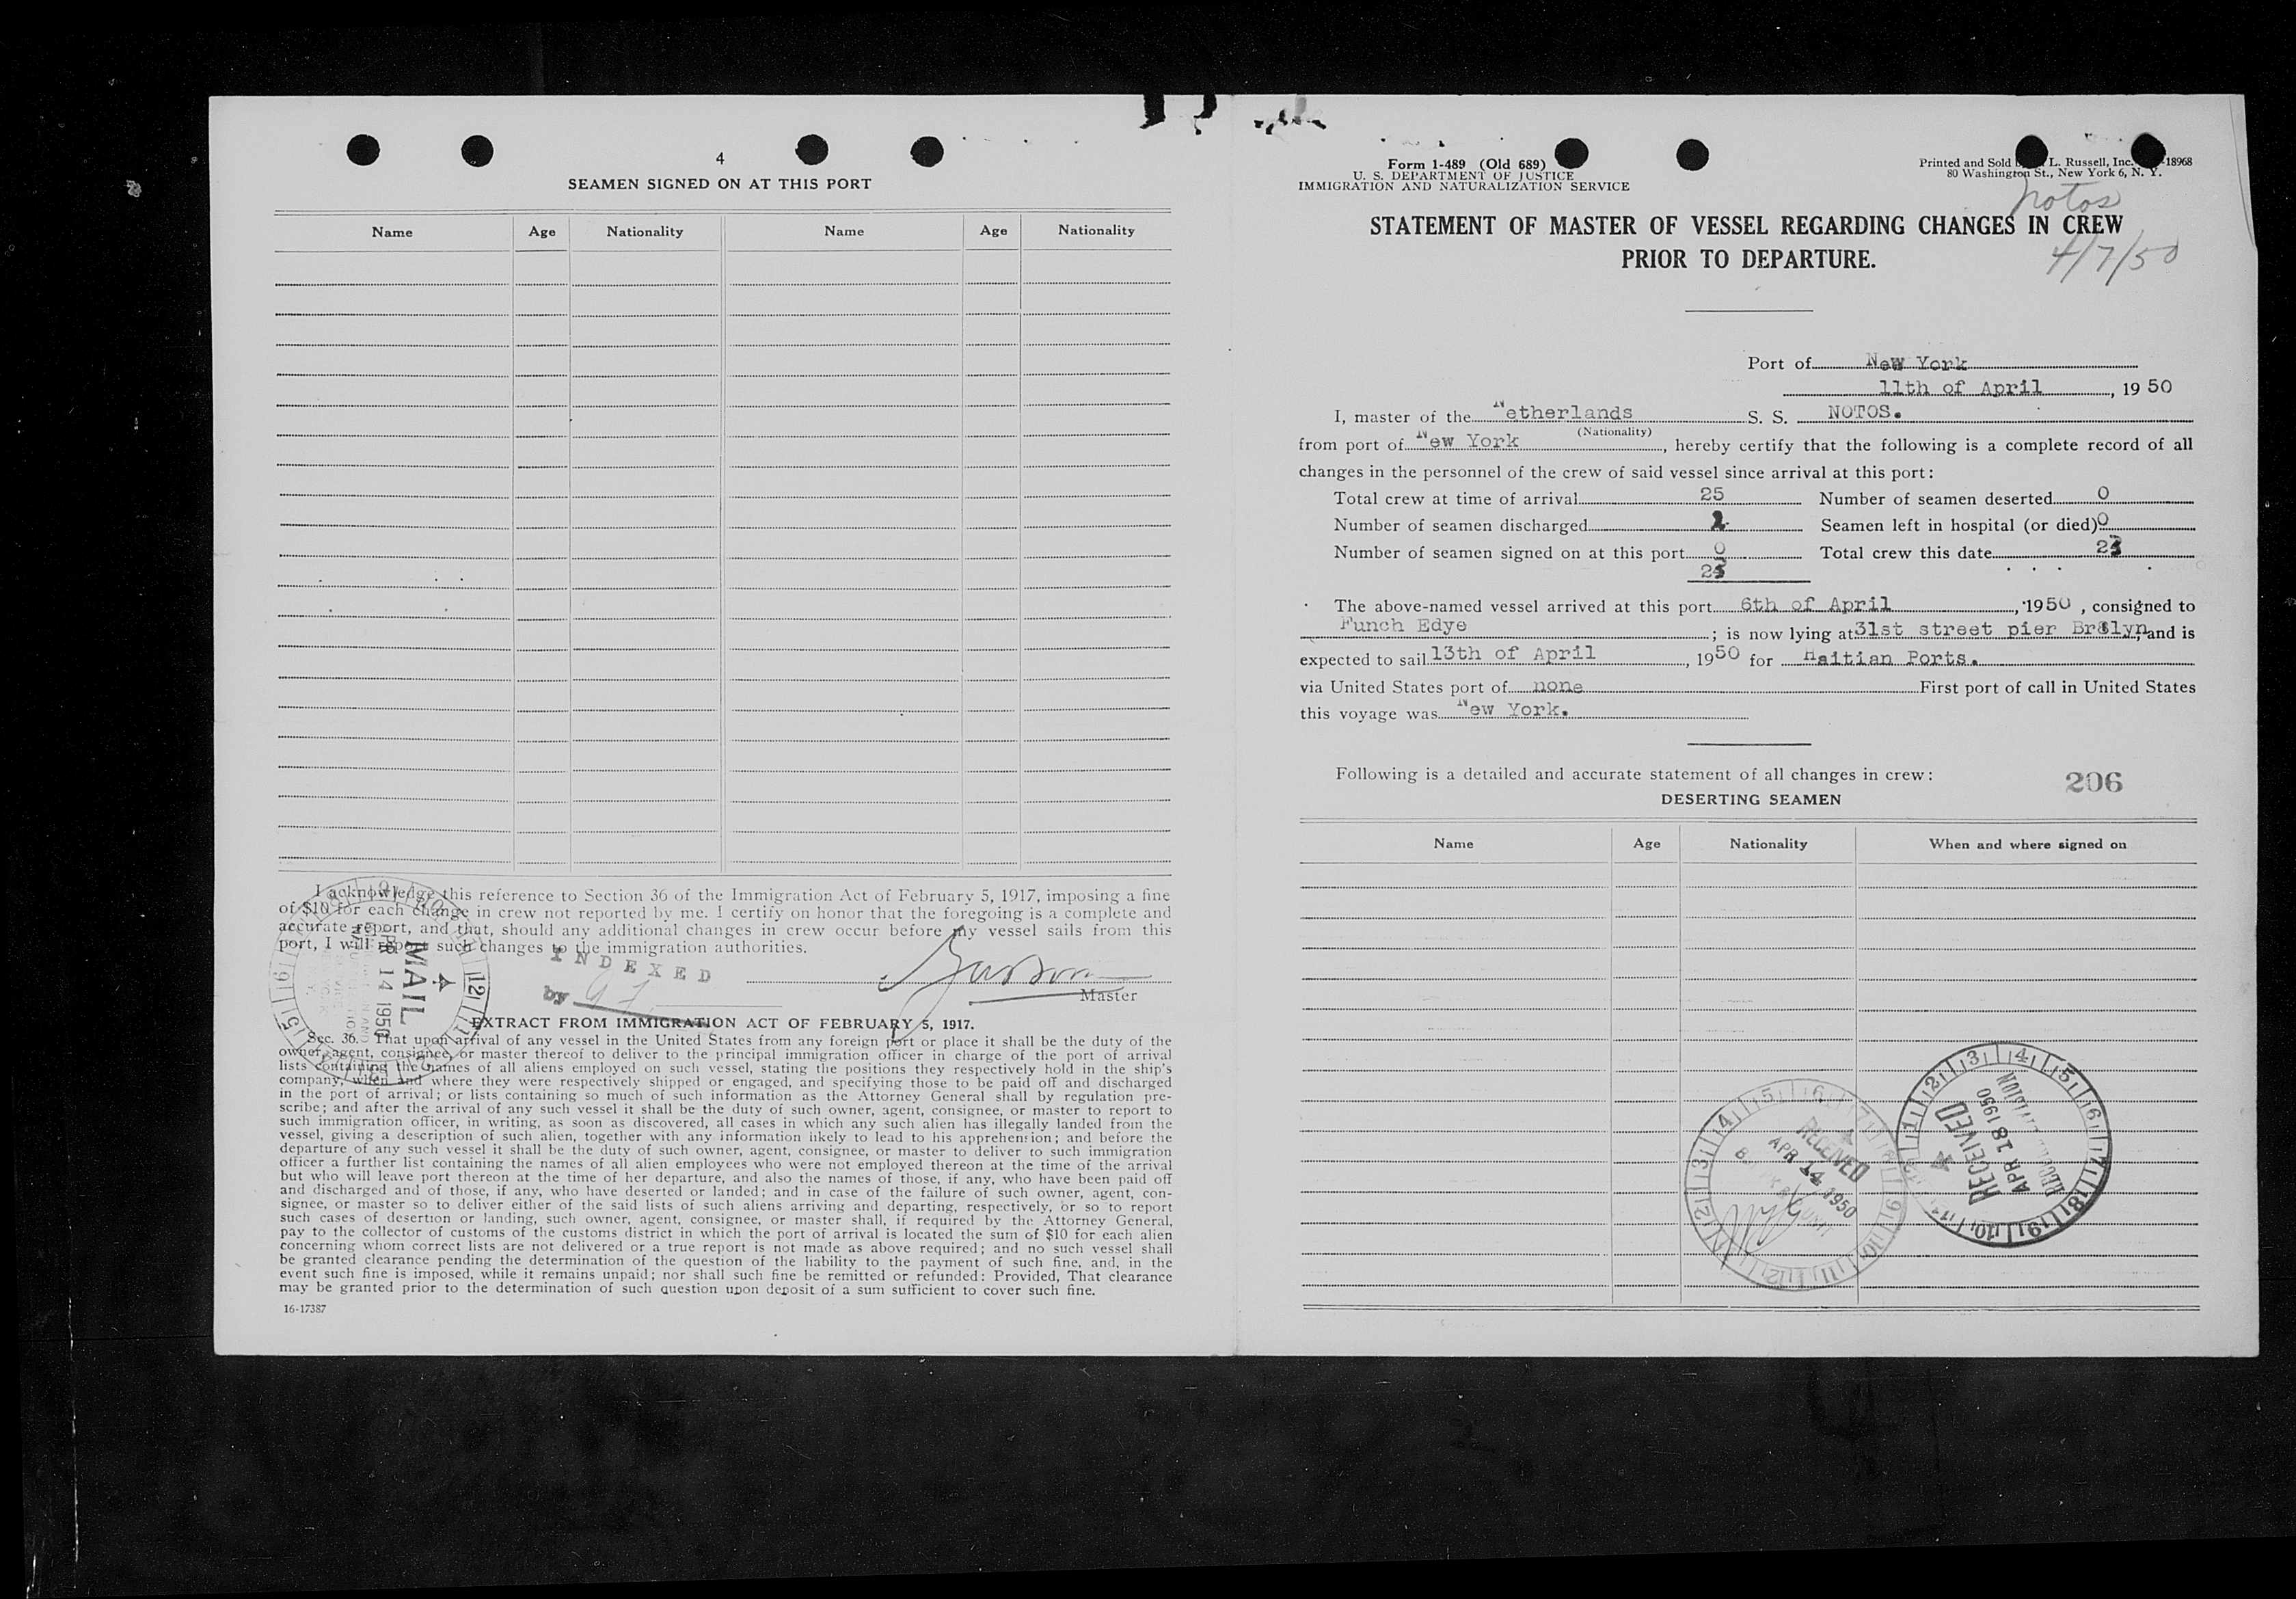 4
SEAMEN SIGNED ON AT THIS PORT
Name Age Nationality Name Age Nationality
I acknowledge this reference to Section 36 of the Immigration Act of February 5, 1917, imposing a fine
of $10 for each change in crew not reported by me. I certify on honor that the foregoing is a complete and
accurate report, and that, should any additional changes in crew occur before my vessel sails from this
port, I will report such changes to the immigration authorities.
MAIL
14 1950
INDEXED
by
Master
EXTRACT FROM IMMIGRATION ACT OF FEBRUARY 5, 1917.
Sec. 36. That upon arrival of any vessel in the United States from any foreign port or place it shall be the duty of the
owner, agent, consignee, or master thereof to deliver to the principal immigration officer in charge of the port of arrival
lists containing the names of all aliens employed on such vessel, stating the positions they respectively hold in the ship's
company, when and where they were respectively shipped or engaged, and specifying those to be paid off and discharged
in the port of arrival; or lists containing so much of such information as the Attorney General shall by regulation pre-
scribe; and after the arrival of any such vessel it shall be the duty of such owner, agent, consignee, or master to report to
such immigration officer, in writing, as soon as discovered, all cases in which any such alien has illegally landed from the
vessel, giving a description of such alien, together with any information likely to lead to his apprehension; and before the
departure of any such vessel it shall be the duty of such owner, agent, consignee, or master to deliver to such immigration
officer a further list containing the names of all alien employees who were not employed thereon at the time of the arrival
but who will leave port thereon at the time of her departure, and also the names of those, if any, who have been paid off
and discharged and of those, if any, who have deserted or landed; and in case of the failure of such owner, agent, con-
signee, or master so to deliver either of the said lists of such aliens arriving and departing, respectively, or so to report
such cases of desertion or landing, such owner, agent, consignee, or master shall, if required by the Attorney General,
pay to the collector of customs of the customs district in which the port of arrival is located the sum of $10 for each alien
concerning whom correct lists are not delivered or a true report is not made as above required; and no such vessel shall
be granted clearance pending the determination of the question of the liability to the payment of such fine, and, in the
event such fine is imposed, while it remains unpaid; nor shall such fine be remitted or refunded: Provided, That clearance
may be granted prior to the determination of such question upon deposit of a sum sufficient to cover such fine.
16-17387
Form 1-489 (Old 689)
U. S. DEPARTMENT OF JUSTICE
IMMIGRATION AND NATURALIZATION SERVICE
Printed and Sold L. Russell, Inc. -18968
80 Washington St., New York 6, N. Y.
Notos
STATEMENT OF MASTER OF VESSEL REGARDING CHANGES IN CREW
PRIOR TO DEPARTURE.
4/7/50
Port of New York
11th of April, 19 50
I, master of the Netherlands S. S. NOTOS.
(Nationality)
from port of New York, hereby certify that the following is a complete record of all
changes in the personnel of the crew of said vessel since arrival at this port:
Total crew at time of arrival 25 Number of seamen deserted 0
Number of seamen discharged 2 Seamen left in hospital (or died) 0
Number of seamen signed on at this port 0 Total crew this date 23
The above-named vessel arrived at this port 6th of April, 1950, consigned to
Funch Edye; is now lying at 31st street pier Brklyn, and is
expected to sail 13th of April, 1950 for Haitian Ports.
via United States port of none First port of call in United States
this voyage was New York.
Following is a detailed and accurate statement of all changes in crew:
206
DESERTING SEAMEN
Name Age Nationality When and where signed on
RECEIVED
APR 14 1950
RECEIVED
APR 18 1950